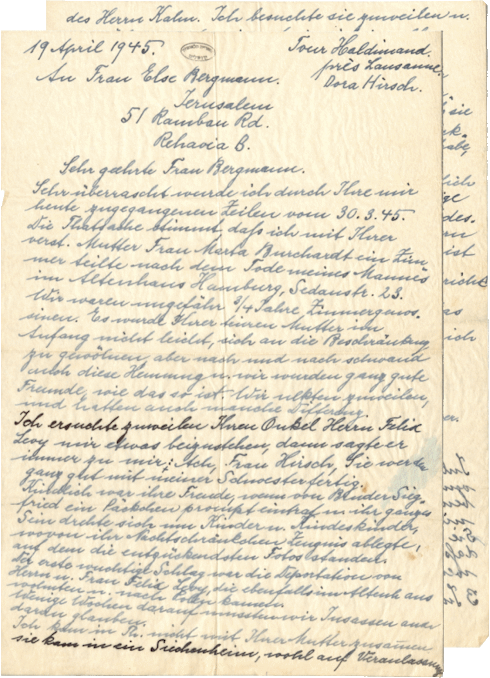 des Herrn Kahn. Ich besuchte sie zuweilen u.
19 April 1945.
Tour Haldimand.
près Lausanne.
Dora Hirsch.
An Frau Else Bergmann.
Jerusalem
51 Rambau Rd.
Rehavia B.
Sehr geehrte Frau Bergmann.
Sehr überrascht wurde ich durch Ihre mir
heute zugegangenen Zeilen vom 30.3.45.
Die Thatsache stimmt, daß ich mit Ihrer
verst. Mutter Frau Marta Burchardt ein Zim
mer teilte nach dem Tode meines Mannes
im Altenhaus Hamburg, Sedanstr. 23.
Wir waren ungefähr 3/4 Jahre, Zimmergenos.
sinen. Es wurde Ihrer teuren Mutter im
Anfang nicht leicht, sich an die Beschränkung
zu gewöhnen, aber nach und nach schwand
auch diese Hemmung u. wir wurden ganz gute
Freunde, wie das so ist. Wir nekten zuweilen,
und hatten auch manche Differenz.
Ich ersuchte zuweilen Ihren Onkel Herrn Felix
Levy mir etwas beizustehen, dann sagte er
immer zu mir; Ach, Frau Hirsch, Sie werden
ganz gut mit meiner Schwester fertig.
Kindlich war ihre Freude, wenn von Bruder Sieg-
fried ein Päckchen prompt eintraf u. ihr ganzes
Sein drehte sich um Kinder u. Kindeskinder,
wovon ihr Nachtschränkchen Zeugnis ablegte,
auf dem die entzückendsten Fotos standen.
Der erste wuchtige Schlag war die Deportation von
Herrn u. Frau Felix Levy, die ebenfalls im Altenhaus
wohnten u. nach Lodz kamen.
Wenige Wochen darauf mussten wir Insassen auch
daran glauben.
Ich kam in Th. nicht mit Ihrer Mutter zusammen
sie kam in ein Siechenheim, wohl auf Veranlassung